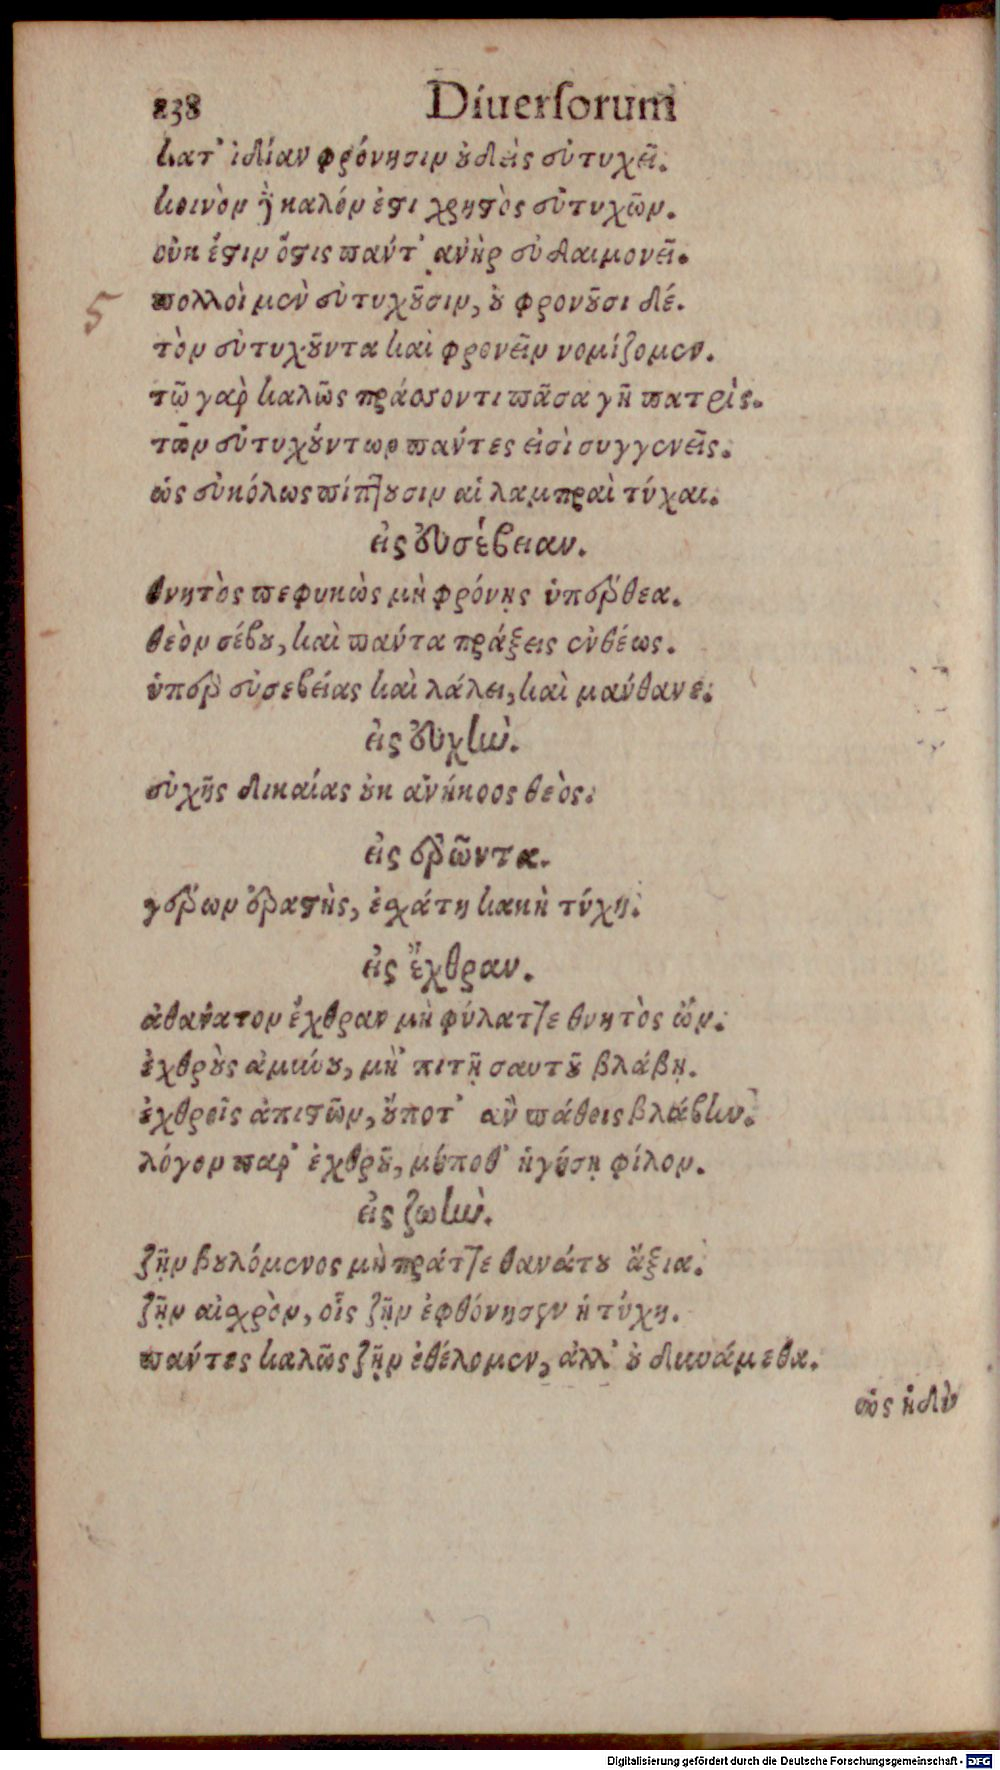 238 Diuersorum
κατ' ἰδίαν φρόνησιν οὐδεὶς εὐτυχεῖ.
κοινὸν γὰρ καλόν ἐστι χρηστὸς εὐτυχῶν.
οὐκ ἔστιν ὅστις πάντ' ἀνὴρ εὐδαιμονεῖ.
5 πολλοὶ μὲν εὐτυχοῦσιν, οὐ φρονοῦσι δέ.
τὸν εὐτυχοῦντα καὶ φρονεῖν νομίζομεν.
τῷ γὰρ καλῶς πράσσοντι πᾶσα γῆ πατρίς.
τῶν εὐτυχούντων πάντες εἰσὶ συγγενεῖς.
ὡς εὐκόλως πίπτουσιν αἱ λαμπραὶ τύχαι.
εἰς εὐσέβειαν.
θνητὸς πεφυκὼς μὴ φρόνῃς ὑπέρθεα.
θεὸν σέβου, καὶ πάντα πράξεις ἐνθέως.
ὑπὲρ εὐσεβείας καὶ λάλει, καὶ μάνθανε.
εἰς εὐχὴν.
εὐχῆς δικαίας οὐκ ἀνήκοος θεὸς.
εἰς ἐρῶντα.
γέρων ἐραστὴς, ἐσχάτη κακὴ τύχη.
εἰς ἔχθραν.
ἀθάνατον ἔχθραν μὴ φύλαττε θνητὸς ὤν.
ἐχθροὺς ἀμύνου, μὴ 'πι τῇ σαυτοῦ βλάβῃ.
ἐχθροῖς ἀπιστῶν, οὔποτ' ἂν πάθοις βλάβην.
λόγον παρ' ἐχθροῦ, μήποθ' ἡγήσῃ φίλον.
εἰς ζωὴν.
ζῆν βουλόμενος μὴ πράττε θανάτου ἄξια.
ζῆν αἰσχρὸν, οἷς ζῆν ἐφθόνησεν ἡ τύχη.
πάντες καλῶς ζῆν ἐθέλομεν, ἀλλ' οὐ δυνάμεθα.
ὡς ἡδὺ
Digitalisierung gefördert durch die Deutsche Forschungsgemeinschaft - DFG